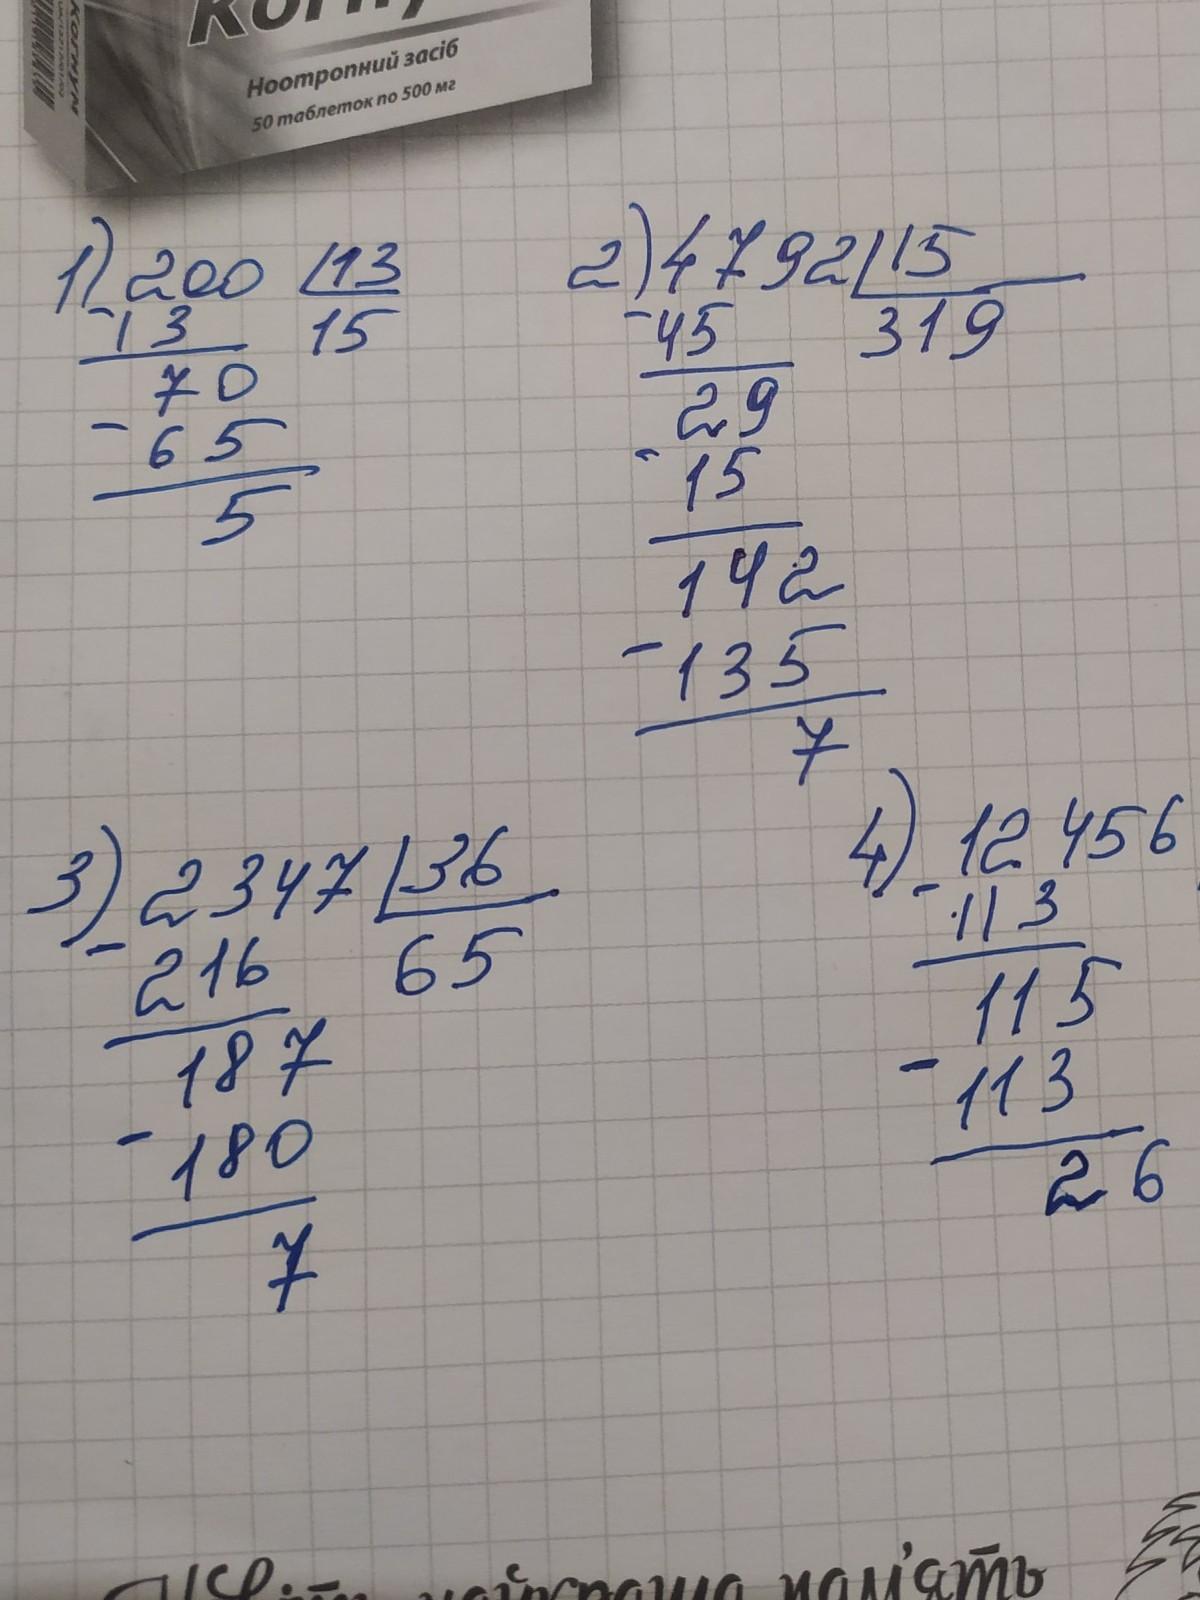 Когнум
Ноотропний засіб
50 таблеток по 500 мг
1) 200 13
-13 15
70
-65
5
2) 4792 15
-45 319
29
-15
142
-135
7
3) 2347 36
-216 65
187
-180
7
4) 12456
-113
115
-113
26
найкраща пам'ять